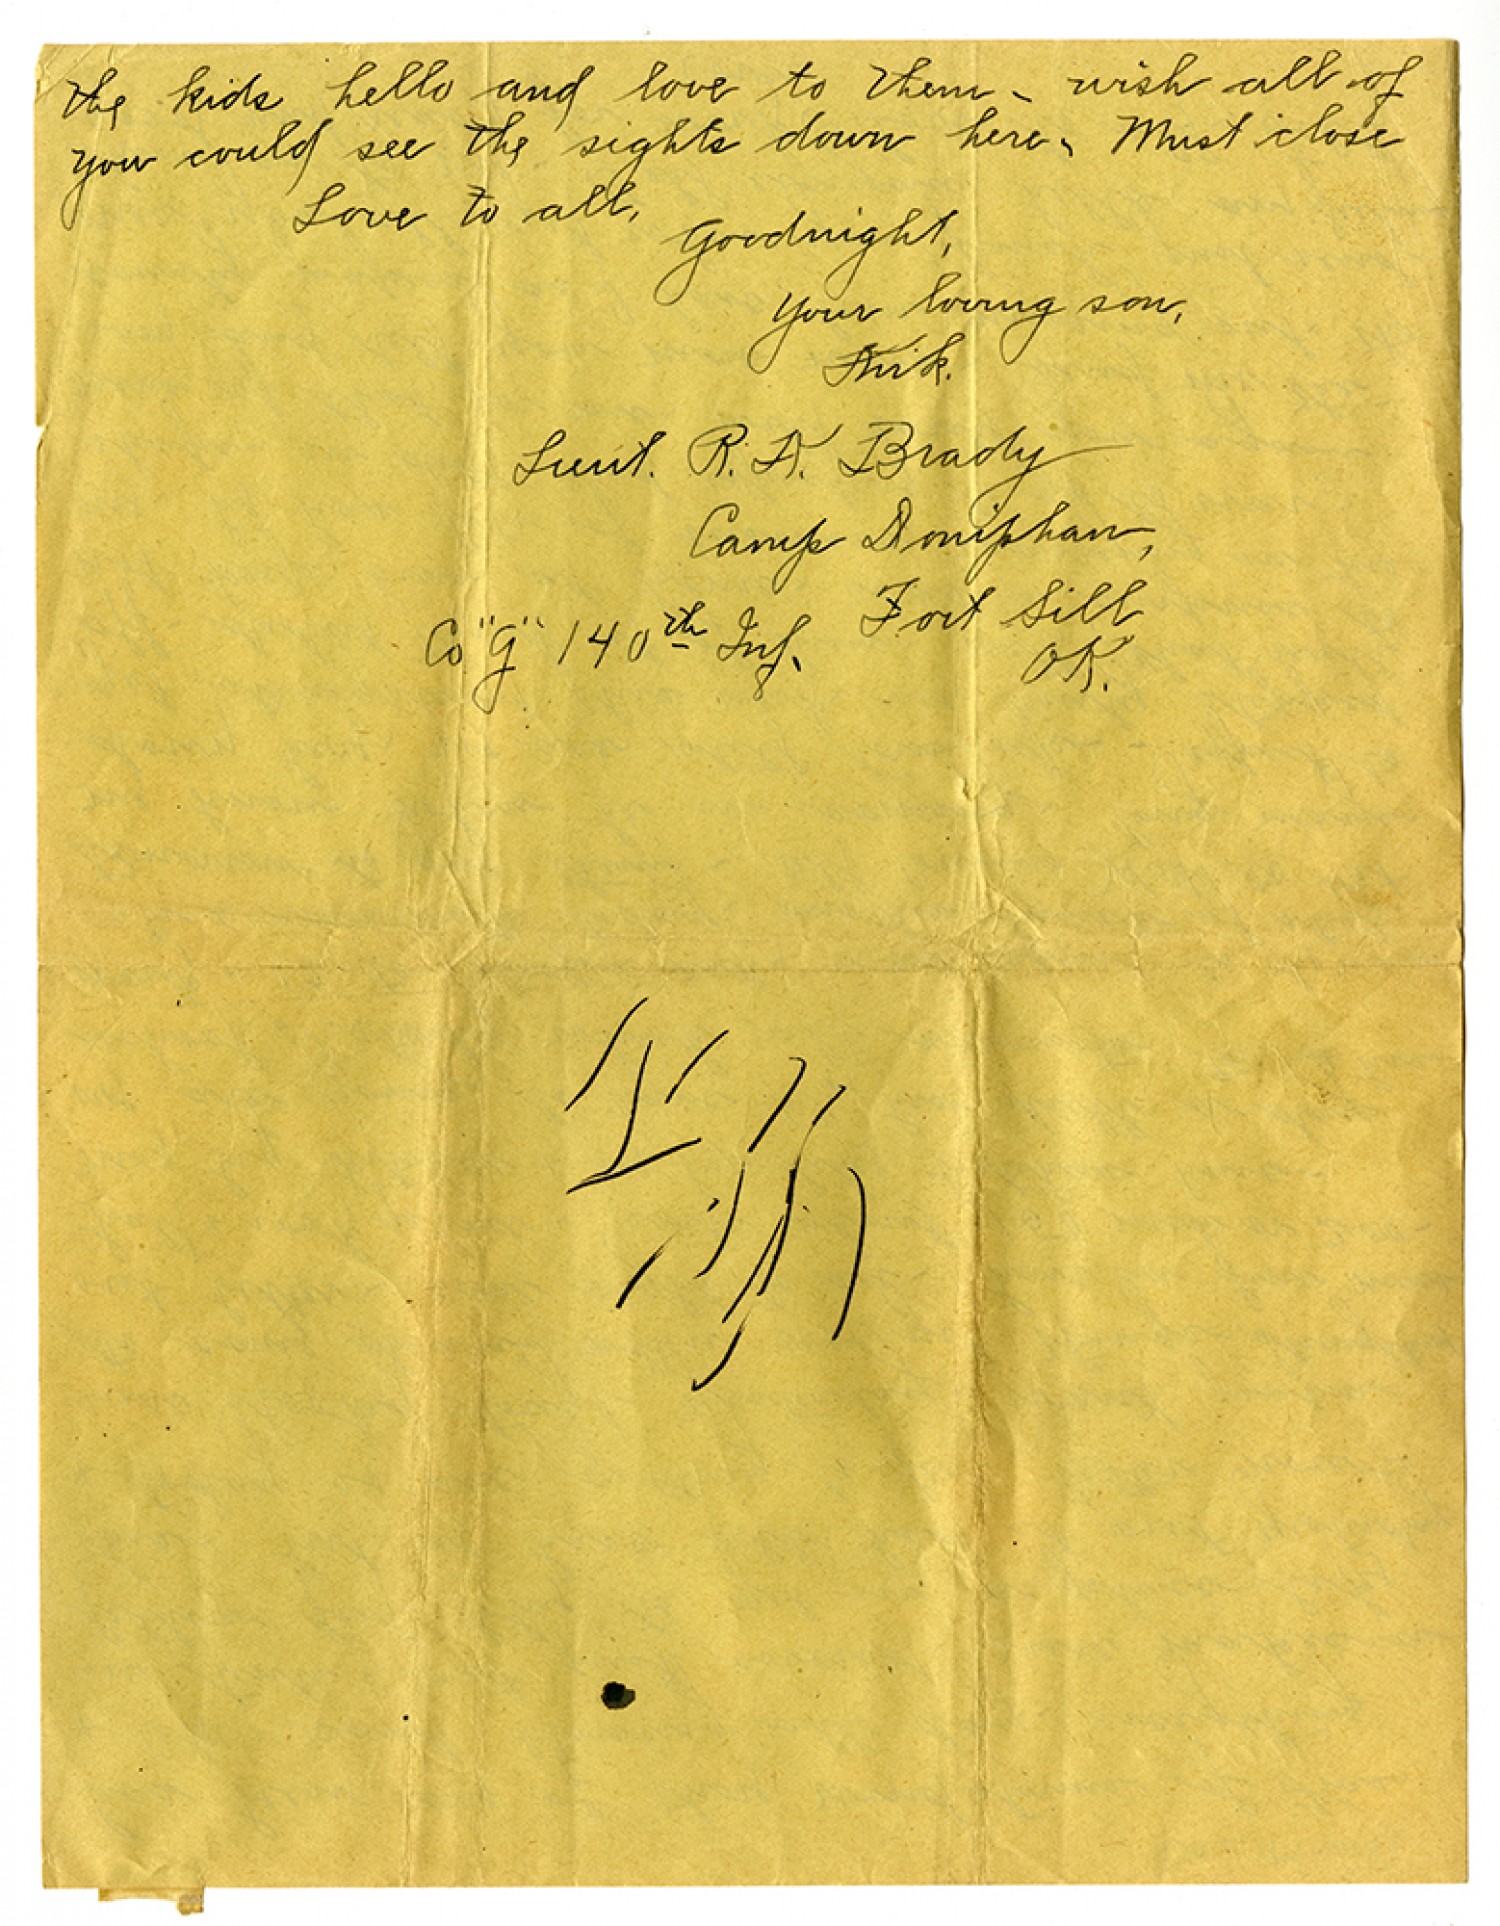 the kids hello and love to them - wish all of
you could see the sights down here. Must close
Love to all,
Goodnight,
Your loving son,
Kirk.
Lieut. R. K. Brady
Camp Doniphan,
Fort Sill
Co "G" 140th Inf.
OK.